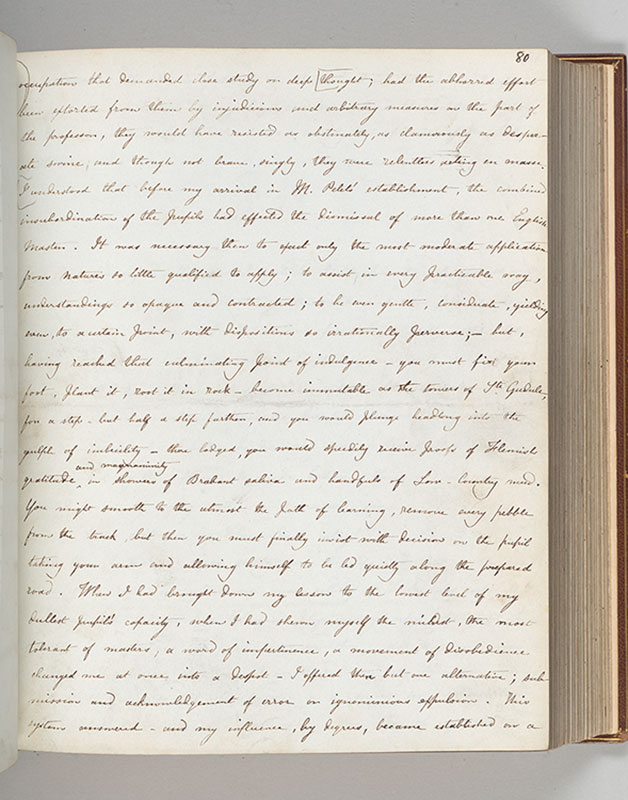 80
occupation that demanded close study or deep thought; had the abhorred effort
been extorted from them by injudicious and arbitrary measures on the part of
the professor, they would have resisted as obstinately, as clamorously as desper-
ate swine; and though not brave, singly, they were relentless acting en masse.
I understood that before my arrival in M. Pelet's establishment, the combined
insubordination of the pupils had effected the dismissal of more than one English
Master. It was necessary then to exact only the most moderate application
from natures so little qualified to apply; to assist, in every practicable way,
understandings so opaque and contracted; to be ever gentle, considerate, yielding
even, to a certain point, with dispositions so irrationally perverse; – but,
having reached that culminating point of indulgence – you must fix your
foot, plant it, root it in rock – become immutable as the towers of Ste Gudule,
for a step – but half a step farther, and you would plunge headlong into the
gulph of imbecility – there lodged, you would speedily receive proofs of Flemish
and magnanimity
gratitude, in showers of Brabant saliva and handfuls of Low-Country mud.
You might smooth to the utmost the path of learning, remove every pebble
from the track, but then you must finally insist with decision on the pupil
taking your arm and allowing himself to be led quietly along the prepared
road. When I had brought down my lesson to the lowest level of my
dullest pupil's capacity, when I had shewn myself the mildest, the most
tolerant of masters; a word of impertinence, a movement of disobedience
changed me at once into a despot – I offered then but one alternative; sub-
mission and acknowledgement of error or ignominious expulsion. This
system answered – and my influence, by degrees, became established on a